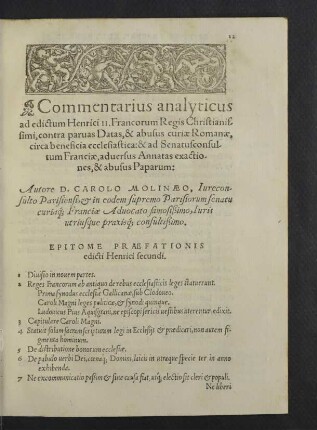 12
Commentarius analyticus
ad edictum Henrici II. Francorum Regis Christianiſ-
ſimi, contra paruas Datas, & abuſus curiæ Romanæ,
circa beneficia eccleſiaſtica: & ad Senatuſconſul-
tum Franciæ, aduerſus Annatas exactio-
nes, & abuſus Paparum:
Autore D. CAROLO MOLINÆO, Iurecon-
ſulto Pariſienſi, & in eodem ſupremo Pariſiorum ſenatu
curiaq; Franciæ Aduocato famoſiſſimo, Iuris
utriuſque praxisq; conſultiſsimo.
EPITOME PRÆFATIONIS
edicti Henrici ſecundi.
1 Diuiſio in nouem partes.
2 Reges Francorum ab antiquo de rebus eccleſiaſticis leges ſtatuerunt.
Prima ſynodus eccleſiæ Gallicanæ ſub Clodoueo.
Caroli Magni leges publicæ, & ſynodi quinque.
Ludouicus Pius Aquiſgrani, ut epiſcopi ſericis ueſtibus abſterrentur edixit.
3 Capitulare Caroli Magni.
4 Statuit ſolam ſacroſanctam ſcripturam legi in Eccleſijs & prædicari, non autem fi-
gmenta hominum.
5 De diſtributione bonorum eccleſiæ.
6 De pabulo uerbi Dei, cœnaq; Domini, laicis in utraque ſpecie ter in anno
exhibenda.
7 Ne excommunicatio paſſim & ſine cauſa fiat, utq; electio ſit cleri & populi.
Ne liberi